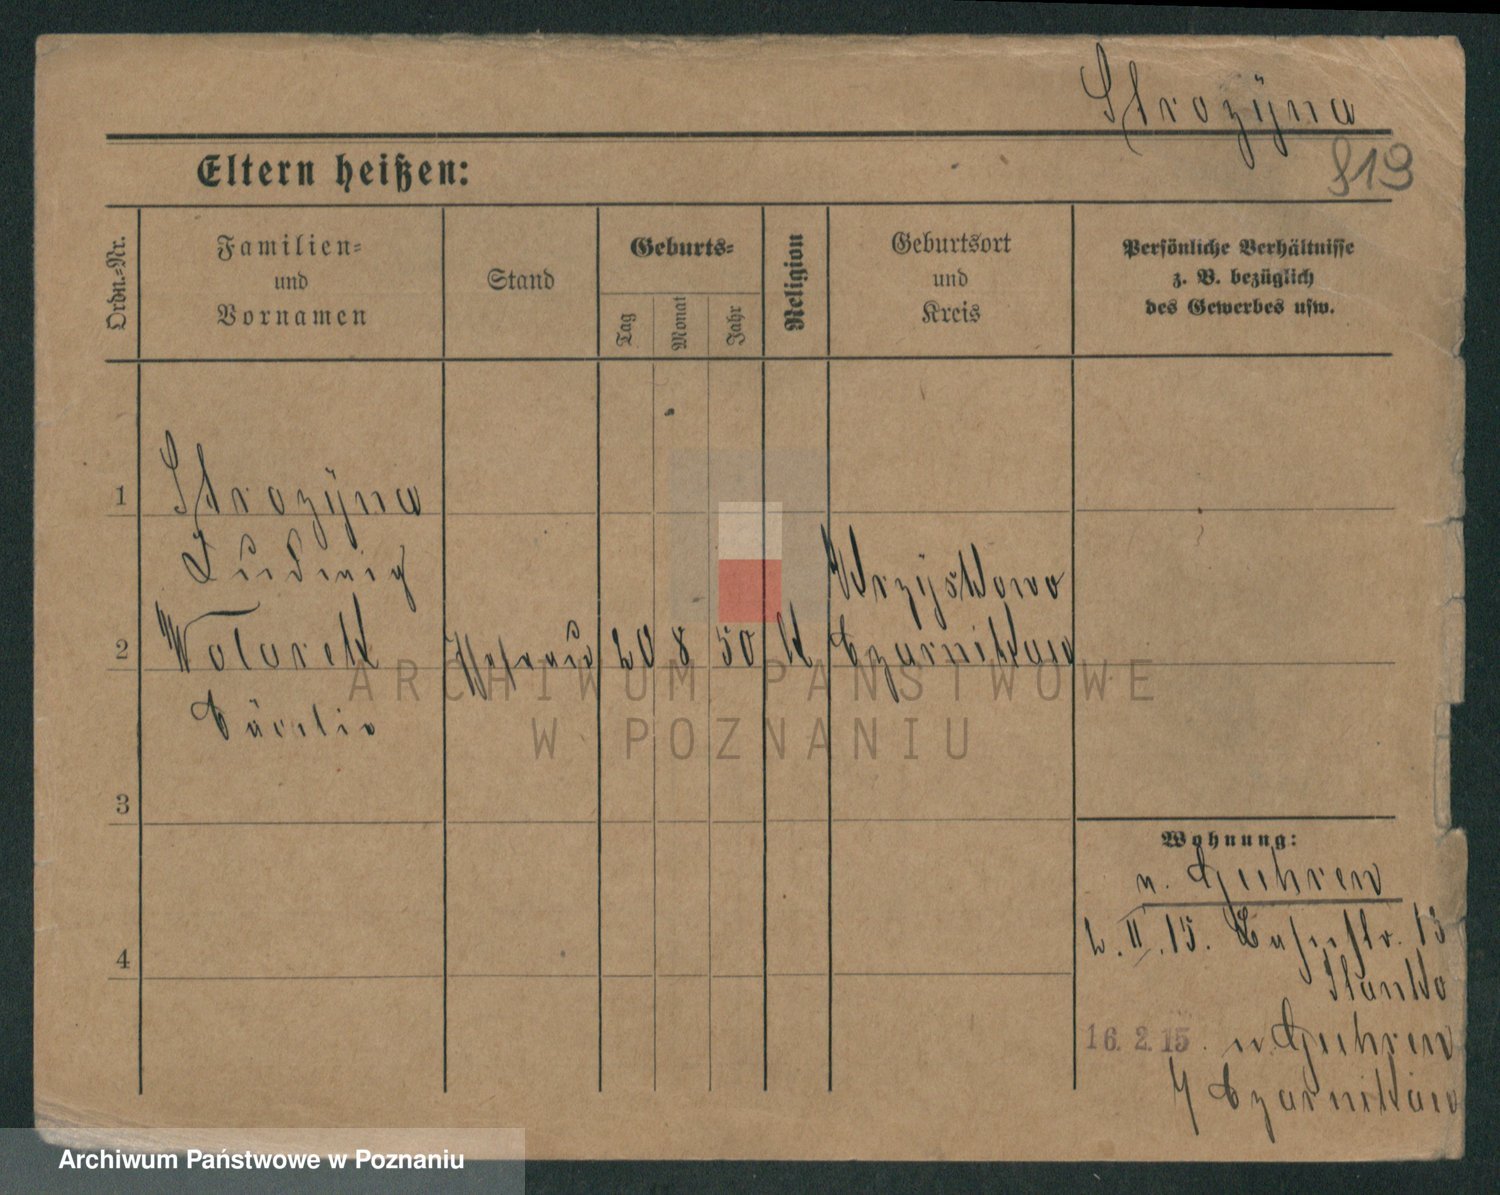 Strozÿna
819
Eltern heißen:
Ordn.-Nr.
Familien-
und
Vornamen
Stand
Geburts-
Tag
Monat
Jahr
Religion
Geburtsort
und
Kreis
Persönliche Verhältnisse
z. B. bezüglich
des Gewerbes usw.
1
Strozÿna
Ludwig
2
Wolarek
20 8 50 k
Czarnikau
Cäcilie
3
4
Wohnung:
n. Guhren
2. II. 15. 13
16. 2. 15. n. Guhren
Czarnikau
ARCHIWUM PAŃSTWOWE
W POZNANIU
Archiwum Państwowe w Poznaniu